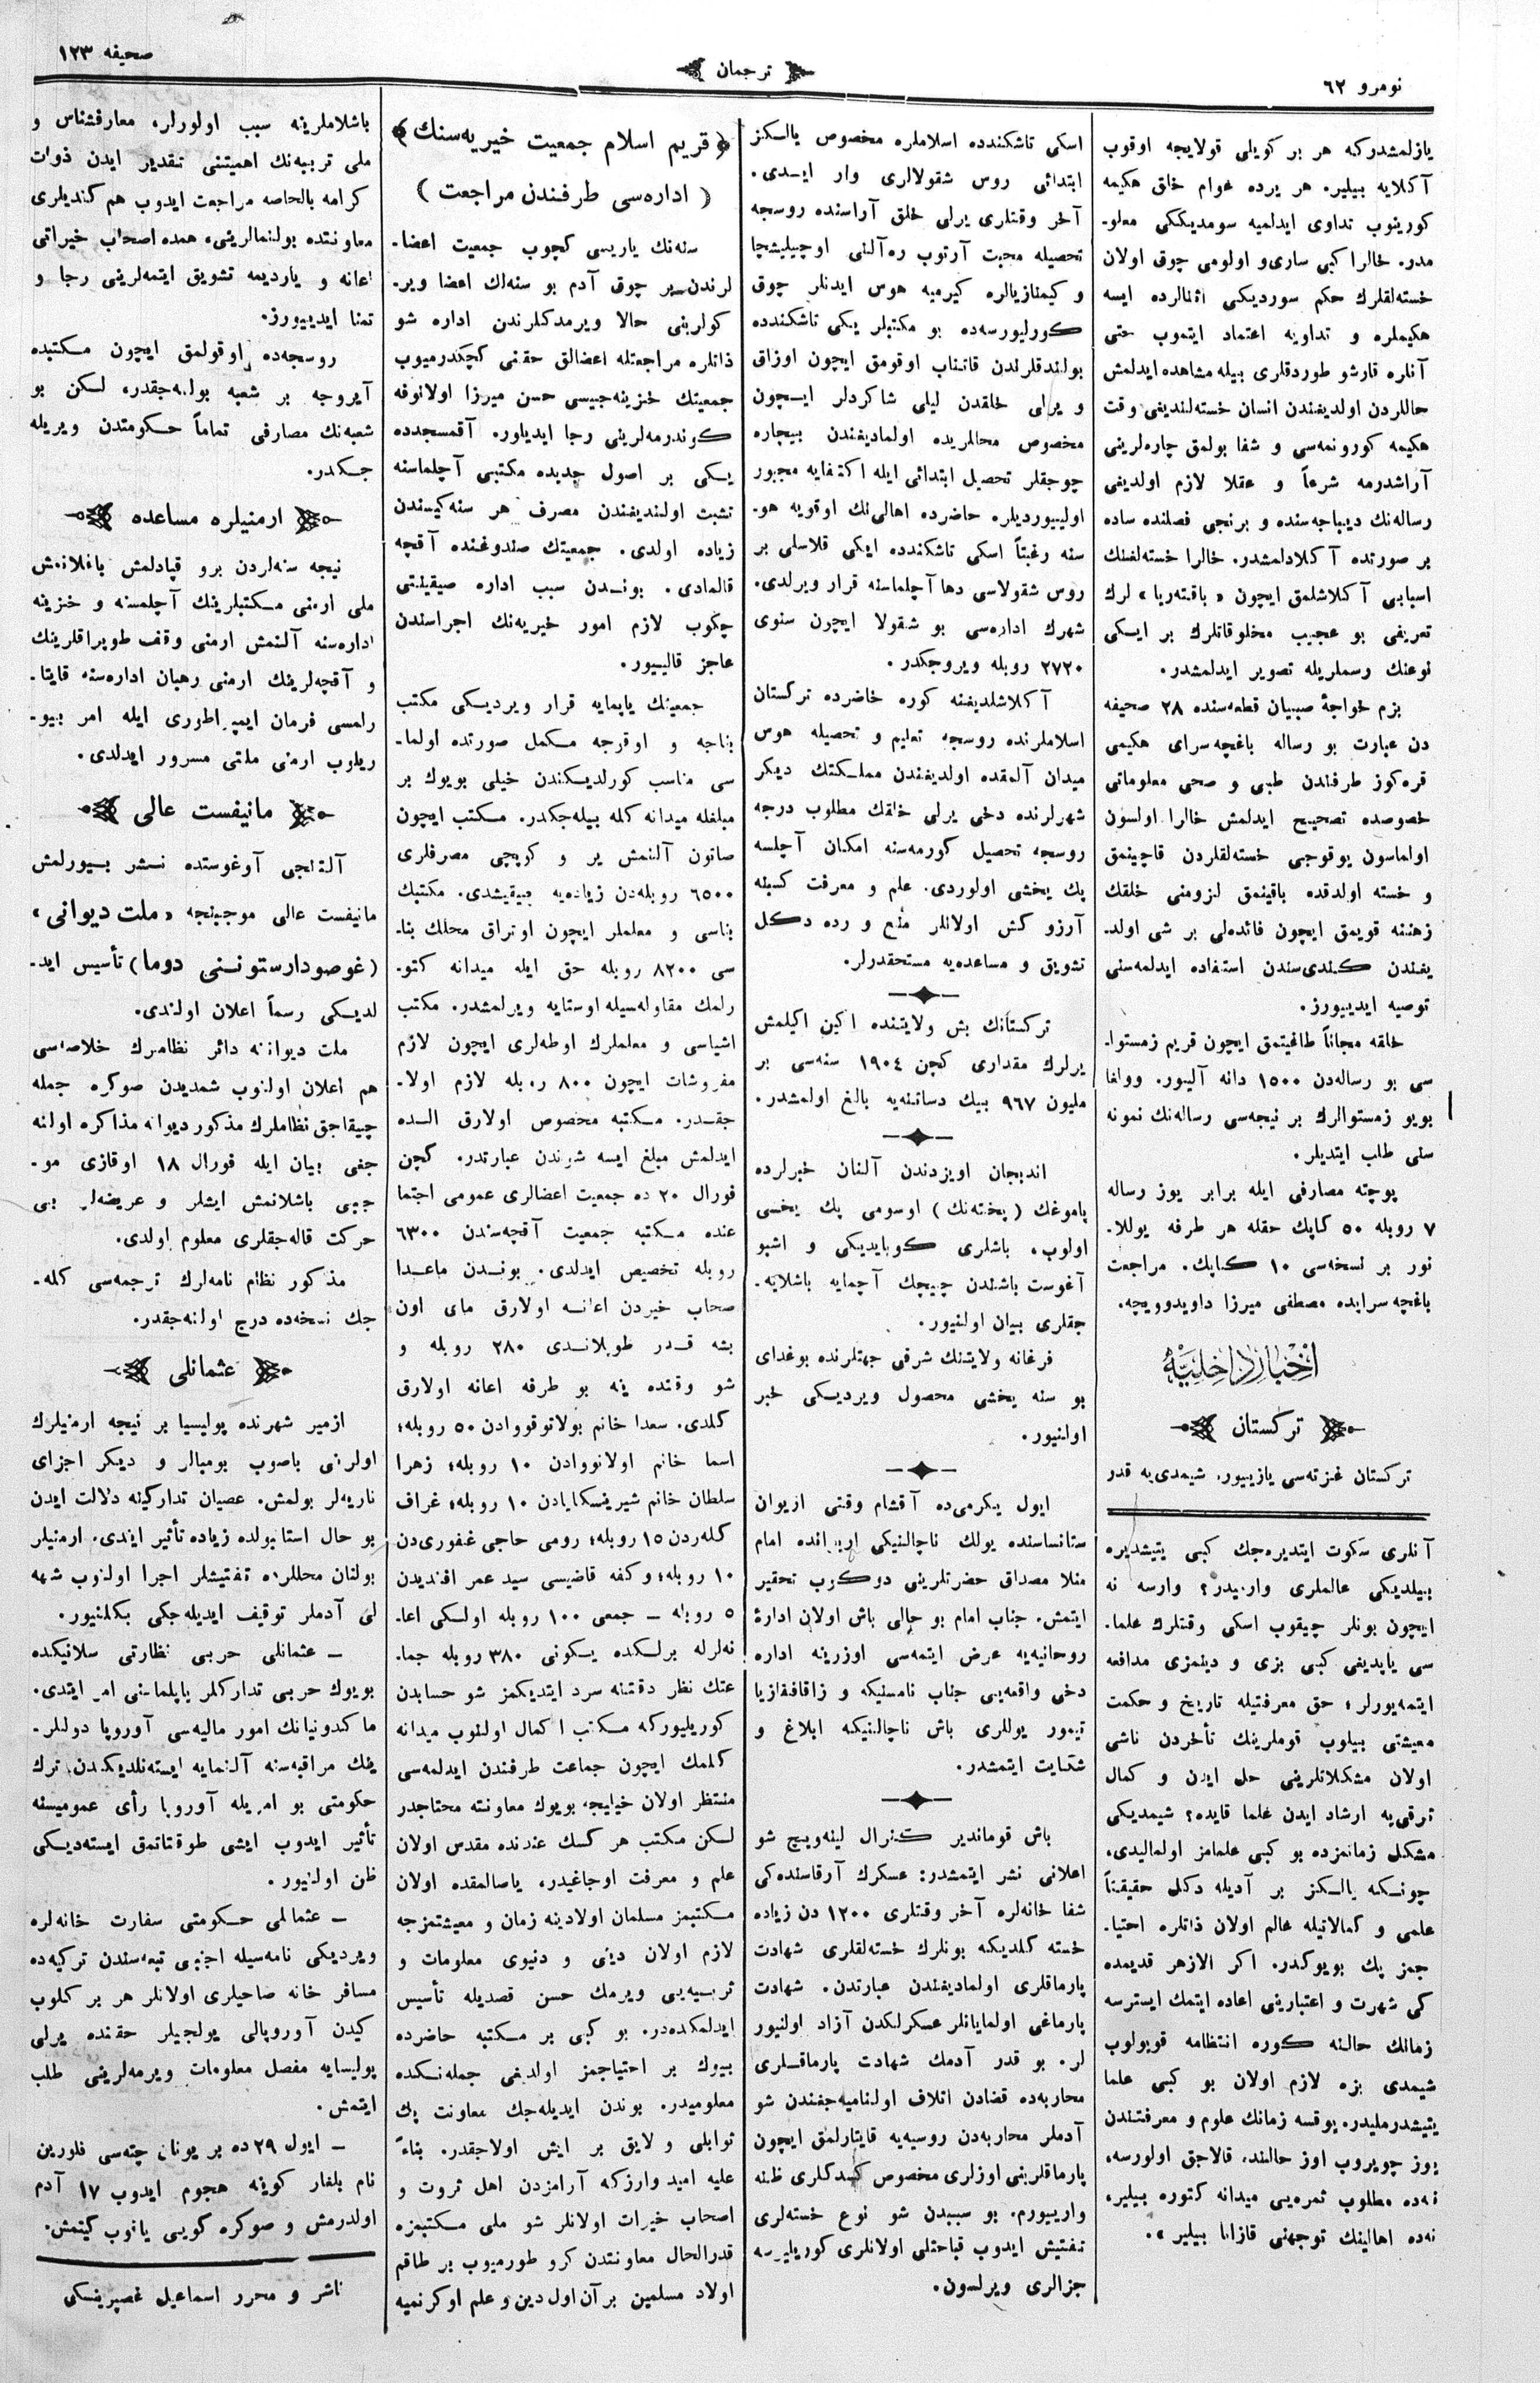 نومرو ٦٢
ترجمان
صحیفه ١٢٣
یازلمشدركه هر بر كویلی قولایجه اوقوب
آكلایه بیلیر. هر یرده عوام خلق هكیمه
كورینوب تداوی ایدلمیه سومدیكی معلو-
مدر. خالرا كبی ساری و اولومی چوق اولان
خسته‌لقلرك حكم سوردیكی اثنالرده ایسه
هكیملره و تداویه اعتماد ایتموب حتی
آنلره قارشو طوردقلری بیله مشاهده ایدلمش
حاللردن اولدیغندن انسان خسته‌لندیغی وقت
هكیمه كورونمه‌سی و شفا بولمق چاره‌لرینی
آراشدرمه شرعاً و عقلا لازم اولدیغی
رساله‌نك دیباجه‌سنده و برنجی فصلنده ساده
بر صورتده آكلادلمشدر. خالرا خسته‌لغنك
اسبابی آكلاشلمق ایچون «باقته‌ریا» لرك
تعریفی بو عجیب مخلوقاتلرك بر ایكی
نوعنك رسملریله تصویر ایدلمشدر.
بزم خواجهٔ صبیان قطعه‌سنده ٢٨ صحیفه
دن عبارت بو رساله باغچه‌سرای هكیمی
قره‌كوز طرفندن طبی و صحی معلوماتی
خصوصده تصحیح ایدلمش خالرا اولسون
اولماسون یوقوجی خسته‌لقلردن قاچینمق
و خسته اولدقده باقینمق لزومنی خلقك
زهننه قویمق ایچون فائده‌لی بر شی اولد-
یغندن كندی‌سندن استفاده ایدلمه‌سنی
توصیه ایدییورز.
خلقه مجاناً طاغیتمق ایچون قریم زمستوا-
سی بو رساله‌دن ١٥٠٠ دانه آلیور. وولغا
بویو زمستوالرك بر نیجه‌سی رساله‌نك نمونه
سنی طلب ایتدیلر.
پوچته مصارفی ایله برابر یوز رساله
٧ روبله ٥٠ كاپك حقله هر طرفه یوللا-
نور بر نسخه‌سی ١٠ كاپك. مراجعت
باغچه سرایده مصطفی میرزا داویدوویچه.
اخبار داخلیه
تركستان
تركستان غزته‌سی یازییور. شیمدی‌یه قدر
آنلری سكوت ایتدیره‌جك كبی یتیشدیره
بیلدیكی عالملری واریدر؟ وارسه نه
ایچون بونلر چیقوب اسكی وقتلرك علما-
سی یاپدیغی كبی بزی و دینمزی مدافعه
ایتمه‌یورلر؛ حق معرفتیله تاریخ و حكمت
معیشتی بیلوب قوملرینك تأخردن ناشی
اولان مشكلاتلرینی حل ایدن و كمال
ترقی‌یه ارشاد ایدن علما قایده؟ شیمدیكی
مشكل زمانمزده بو كبی علمامز اولمالیدی،
چونكه یالكز بر آدیله دكل حقیقتاً
علمی و كمالاتیله عالم اولان ذاتلره احتیا-
جمز پك بویوكدر. اكر الازهر قدیمده
كی شهرت و اعتبارینی اعاده ایتمك ایسترسه
زمانك حالنه كوره انتظامه قویولوب
شیمدی بزه لازم اولان بو كبی علما
یتیشدرملیدر. یوقسه زمانك علوم و معرفتندن
یوز چویروب اوز حالنده قالاجق اولورسه،
نه‌ده مطلوب ثمره‌یی میدانه كتوره بیلیر،
نه‌ده اهالینك توجهنی قازانا بیلیر».
اسكی تاشكندده اسلاملره مخصوص یالكز
ابتدائی روس شقولالری وار ایدی.
آخر وقتلری یرلی خلق آراسنده روسجه
تحصیله محبت آرتوب ره‌آلنی اوچیلیشچا
و كیمنازیالره كیرمیه هوس ایدنلر چوق
كورلیورسه‌ده بو مكتبلر یكی تاشكندده
بولندقلرندن قاتناب اوقومق ایچون اوزاق
و یرلی خلقدن لیلی شاكردلر ایچون
مخصوص محالمریده اولمادیغندن بیچاره
چوجقلر تحصیل ابتدائی ایله اكتفایه مجبور
اولییوردیلر. حاضرده اهالی‌نك اوقویه هو-
سنه رغبتاً اسكی تاشكندده ایكی قلاسلی بر
روس شقولاسی دها آچلماسنه قرار ویرلدی.
شهرك اداره‌سی بو شقولا ایچون سنوی
٢٧٢٠ روبله ویروجكدر.
آكلاشلدیغنه كوره حاضرده تركستان
اسلاملرنده روسچه تعلیم و تحصیله هوس
میدان آلمقده اولدیغندن مملكتك دیكر
شهرلرنده دخی یرلی خلقك مطلوب درجه
روسجه تحصیل كورمه‌سنه امكان آچلسه
پك یخشی اولوردی. علم و معرفت كسبنه
آرزو كش اولانلر منع و رده دكل
تشویق و مساعده‌یه مستحقدرلر.
تركستانك بش ولایتنده اكین اكیلمش
یرلرك مقداری كچن ١٩٠٤ سنه‌سی بر
ملیون ٩٦٧ بیك دساتنه‌یه بالغ اولمشدر.
اندیجان اویزدندن آلنان خبرلرده
پاموغك (پخته‌نك) اوسومی پك یخشی
اولوب، باشلری كوبایدیكی و اشبو
آغوست باشندن چیچك آچمایه باشلایه-
جقلری بیان اولنیور.
فرغانه ولایتنك شرقی جهتلرنده بوغدای
بو سنه یخشی محصول ویردیكی خبر
اولنیور.
ایول یكرمی‌ده آقشام وقتی ازیوان
ستانساسنده یولك ناچالنیكی امام
منلا مصداق حضرتلرینی دوكوب تحقیر
ایتمش. جناب امام بو حالی باش اولان ادارهٔ
روحانیه‌یه عرض ایتمه‌سی اوزرینه اداره
دخی واقعه‌یی جناب نامسنیكه و زاقافقازیا
تیمور یوللری باش ناچالنیكنه ابلاغ و
شكایت ایتمشدر.
باش قوماندیر كنرال لینه‌ویچ شو
اعلانی نشر ایتمشدر: عسكرك آرقاسنده‌كی
شفا خانه‌لره آخر وقتلری ١٢٠٠ دن زیاده
خسته كلدیكه بونلرك خسته‌لقلری شهادت
پارماقلری اولمادیغندن عبارتدن. شهادت
پارماغی اولمایانلر عسكرلكدن آزاد اولنیور
لر. بو قدر آدمك شهادت پارماقلری
محاربه‌ده قضادن اتلاف اولنامیه‌جغندن شو
آدملر محاربه‌دن روسیه‌یه قایتارلمق ایچون
پارماقلرینی اوزلری مخصوص كسدكلری ظنه
وارییورم. بو سببدن شو نوع خسته‌لری
تفتیش ایدوب قباحتلی اولانلری كوریلیرسه
جزالری ویرلسون.
﴿قریم اسلام جمعیت خیریه‌سنك﴾
(اداره‌سی طرفندن مراجعت)
سنه‌نك یاریسی كچوب جمعیت اعضا-
لرندن بر چوق آدم بو سنه‌لك اعضا ویر-
كولرینی حالا ویرمدكلرندن اداره شو
ذاتلره مراجعتله اعضالق حقنی كچكدرمیوب
جمعیتك خزینه‌جیسی حسن میرزا اولانوفه
كوندرمه‌لرینی رجا ایدیاور. آقمسجدده
یكی بر اصول جدیده مكتبی آچلماسنه
تشبث اولندیغندن مصرف هر سنه‌كیسندن
زیاده اولدی. جمعیتك صندوغنده آقچه
قالمادی. بوندن سبب اداره صیقینتی
چكوب لازم امور خیریه‌نك اجراسندن
عاجز قالییور.
جمعیتك یاپمایه قرار ویردیكی مكتب
بناجه و اوقرجه مكمل صورتده اولما-
سی مناسب كورلدیكندن خیلی بویوك بر
مبلغله میدانه كله بیله‌جكدر. مكتب ایچون
صاتون آلنمش یر و كرپچی مصرفلری
٦٥٠٠ روبله‌دن زیاده‌یه چیقیشدی. مكتبك
بناسی و معلملر ایچون اوتراق محلك بنا-
سی ٨٢٠٠ روبله حق ایله میدانه كتو-
رلمك مقاوله‌سیله اوستایه ویرلمشدر. مكتب
اشیاسی و معلملرك اوطه‌لری ایچون لازم
مفروشات ایچون ٨٠٠ روبله لازم اولا-
جقدر. مكتبه مخصوص اولارق الده
ایدلمش مبلغ ایسه شوندن عبارتدر. كچن
فورال ٢٠ ده جمعیت اعضالری عمومی اجتما
عنده مكتبه جمعیت آقچه‌سندن ٦٣٠٠
روبله تخصیص ایدلدی. بوندن ماعدا
صحاب خیردن اعانه اولارق مای اون
بشه قدر طوپلاندی ٢٨٠ روبله و
شو وقتده ینه بو طرفه اعانه اولارق
كلدی. سعدا خانم بولاتوقووادن ٥٠ روبله؛
اسما خانم اولانووادن ١٠ روبله؛ زهرا
سلطان خانم شیرینسكایادن ١٠ روبله؛ غراف
كله‌ردن ١٥ روبله؛ رومی حاجی غفوری‌دن
١٠ روبله؛ و كفه قاضیسی سید عمر افندیدن
٥ روبله – جمعی ١٠٠ روبله اولكی اعا-
نه‌لرله برلكده یكونی ٣٨٠ روبله جما-
عتك نظر دقتنه سرد ایتدیكمز شو حسابدن
كوریلیوركه مكتب اكمال اولنوب میدانه
كلمك ایچون جماعت طرفندن ایدلمه‌سی
منتظر اولان خیلیجه بویوك معاونته محتاجدر
لكن مكتب هر كسك عندنده مقدس اولان
علم و معرفت اوجاغیدر، یاصالمقده اولان
مكتبمز مسلمان اولادینه زمان و معیشتمزجه
لازم اولان دینی و دنیوی معلومات و
تربیه‌یی ویرمك حسن قصدیله تأسیس
ایدلمكده‌در. بو كبی بر مكتبه حاضرده
بیوك بر احتیاجمز اولدیغی جمله‌نكده
معلومیدر. بوندن ایدیله‌جك معاونت پك
ثوابلی و لایق بر ایش اولاجقدر. بناءً
علیه امید وارزكه آرامزدن اهل ثروت و
اصحاب خیرات اولانلر شو ملی مكتبمزه
قدرالحال معاونتدن كرو طورمیوب بر طاقم
اولاد مسلمین بر آن اول دین و علم اوكرنمیه
باشلاملرینه سبب اولورلر، معارفشناس و
ملی تربیه‌نك اهمیتنی تقدیر ایدن ذوات
كرامه بالخاصه مراجعت ایدوب هم كندیلری
معاونتده بولنمالرینی، همده اصحاب خیراتی
اعانه و یاردیمه تشویق ایتمه‌لرینی رجا و
تمنا ایدییورز.
روسجه‌ده اوقولمق ایچون مكتبده
آیروجه بر شعبه بولنه‌جقدر، لكن بو
شعبه‌نك مصارفی تماماً حكومتدن ویریله
جكدر.
ارمنیلره مساعده
نیجه سنه‌لردن برو قپادلمش باغلانمش
ملی ارمنی مكتبلرینك آچلمسنه و خزینه
اداره‌سنه آلنمش ارمنی وقف طوپراقلرینك
و آقچه‌لرینك ارمنی رهبان اداره‌سنه قایتا-
رلمسی فرمان ایمپراطوری ایله امر بیو-
ریلوب ارمنی ملتی مسرور ایدلدی.
مانیفست عالی
آلتنجی آوغوستده نشر بیورلمش
مانیفست عالی موجبنجه «ملت دیوانی»
(غوصودارستوننی دوما) تأسیس اید-
لدیكی رسماً اعلان اولندی.
ملت دیواننه دائر نظامرك خلاصه‌سی
هم اعلان اولنوب شمدیدن صوكره جمله
چیقاجق نظاملرك مذكور دیوانه مذاكره اولنه
جغی بیان ایله فورال ١٨ اوقازی مو-
جبی باشلانمش ایشلر و عریضه‌لر بی
حركت قاله‌جقلری معلوم اولدی.
مذكور نظام نامه‌لرك ترجمه‌سی كله-
جك نسخه‌ده درج اولنه‌جقدر.
عثمانلی
ازمیر شهرنده پولیسیا بر نیجه ارمنیلرك
اولرینی باصوب بومبالر و دیكر اجزای
ناریه‌لر بولمش. عصیان تداركینه دلالت ایدن
بو حال استانبولده زیاده تأثیر ایتدی. ارمنیلر
بولنان محللرده تفتیشلر اجرا اولنوب شبهه
لی آدملر توقیف ایدیله‌جكی بكلنیور.
– عثمانلی حربی نظارتی سلانیكده
بویوك حربی تداركلر یاپلماسنی امر ایتدی.
ماكدونیانك امور مالیه‌سی آوروپا دولتلر-
ینك مراقبه‌سنه آلنمایه ایسته‌نلدیكندن ترك
حكومتی بو امریله آوروپا رأی عمومیسنه
تأثیر ایدوب ایشی طوقتاتمق ایسته‌دیكی
ظن اولنیور.
– عثمانلی حكومتی سفارت خانه‌لره
ویردیكی نامه‌سیله اجنبی تبعه‌سندن تركیه‌ده
مسافر خانه صاحبلری اولانلر هر بر كلوب
كیدن آوروپالی یولجیلر حقنده یرلی
پولیسایه مفصل معلومات ویرمه‌لرینی طلب
ایتمش.
– ایول ٢٩ ده بر یونان چته‌سی فلورین
نام بلغار كوینه هجوم ایدوب ١٧ آدم
اولدرمش و صوكره كویی یاقوب كیتمش.
ناشر و محرر اسماعیل غصپرینسكی